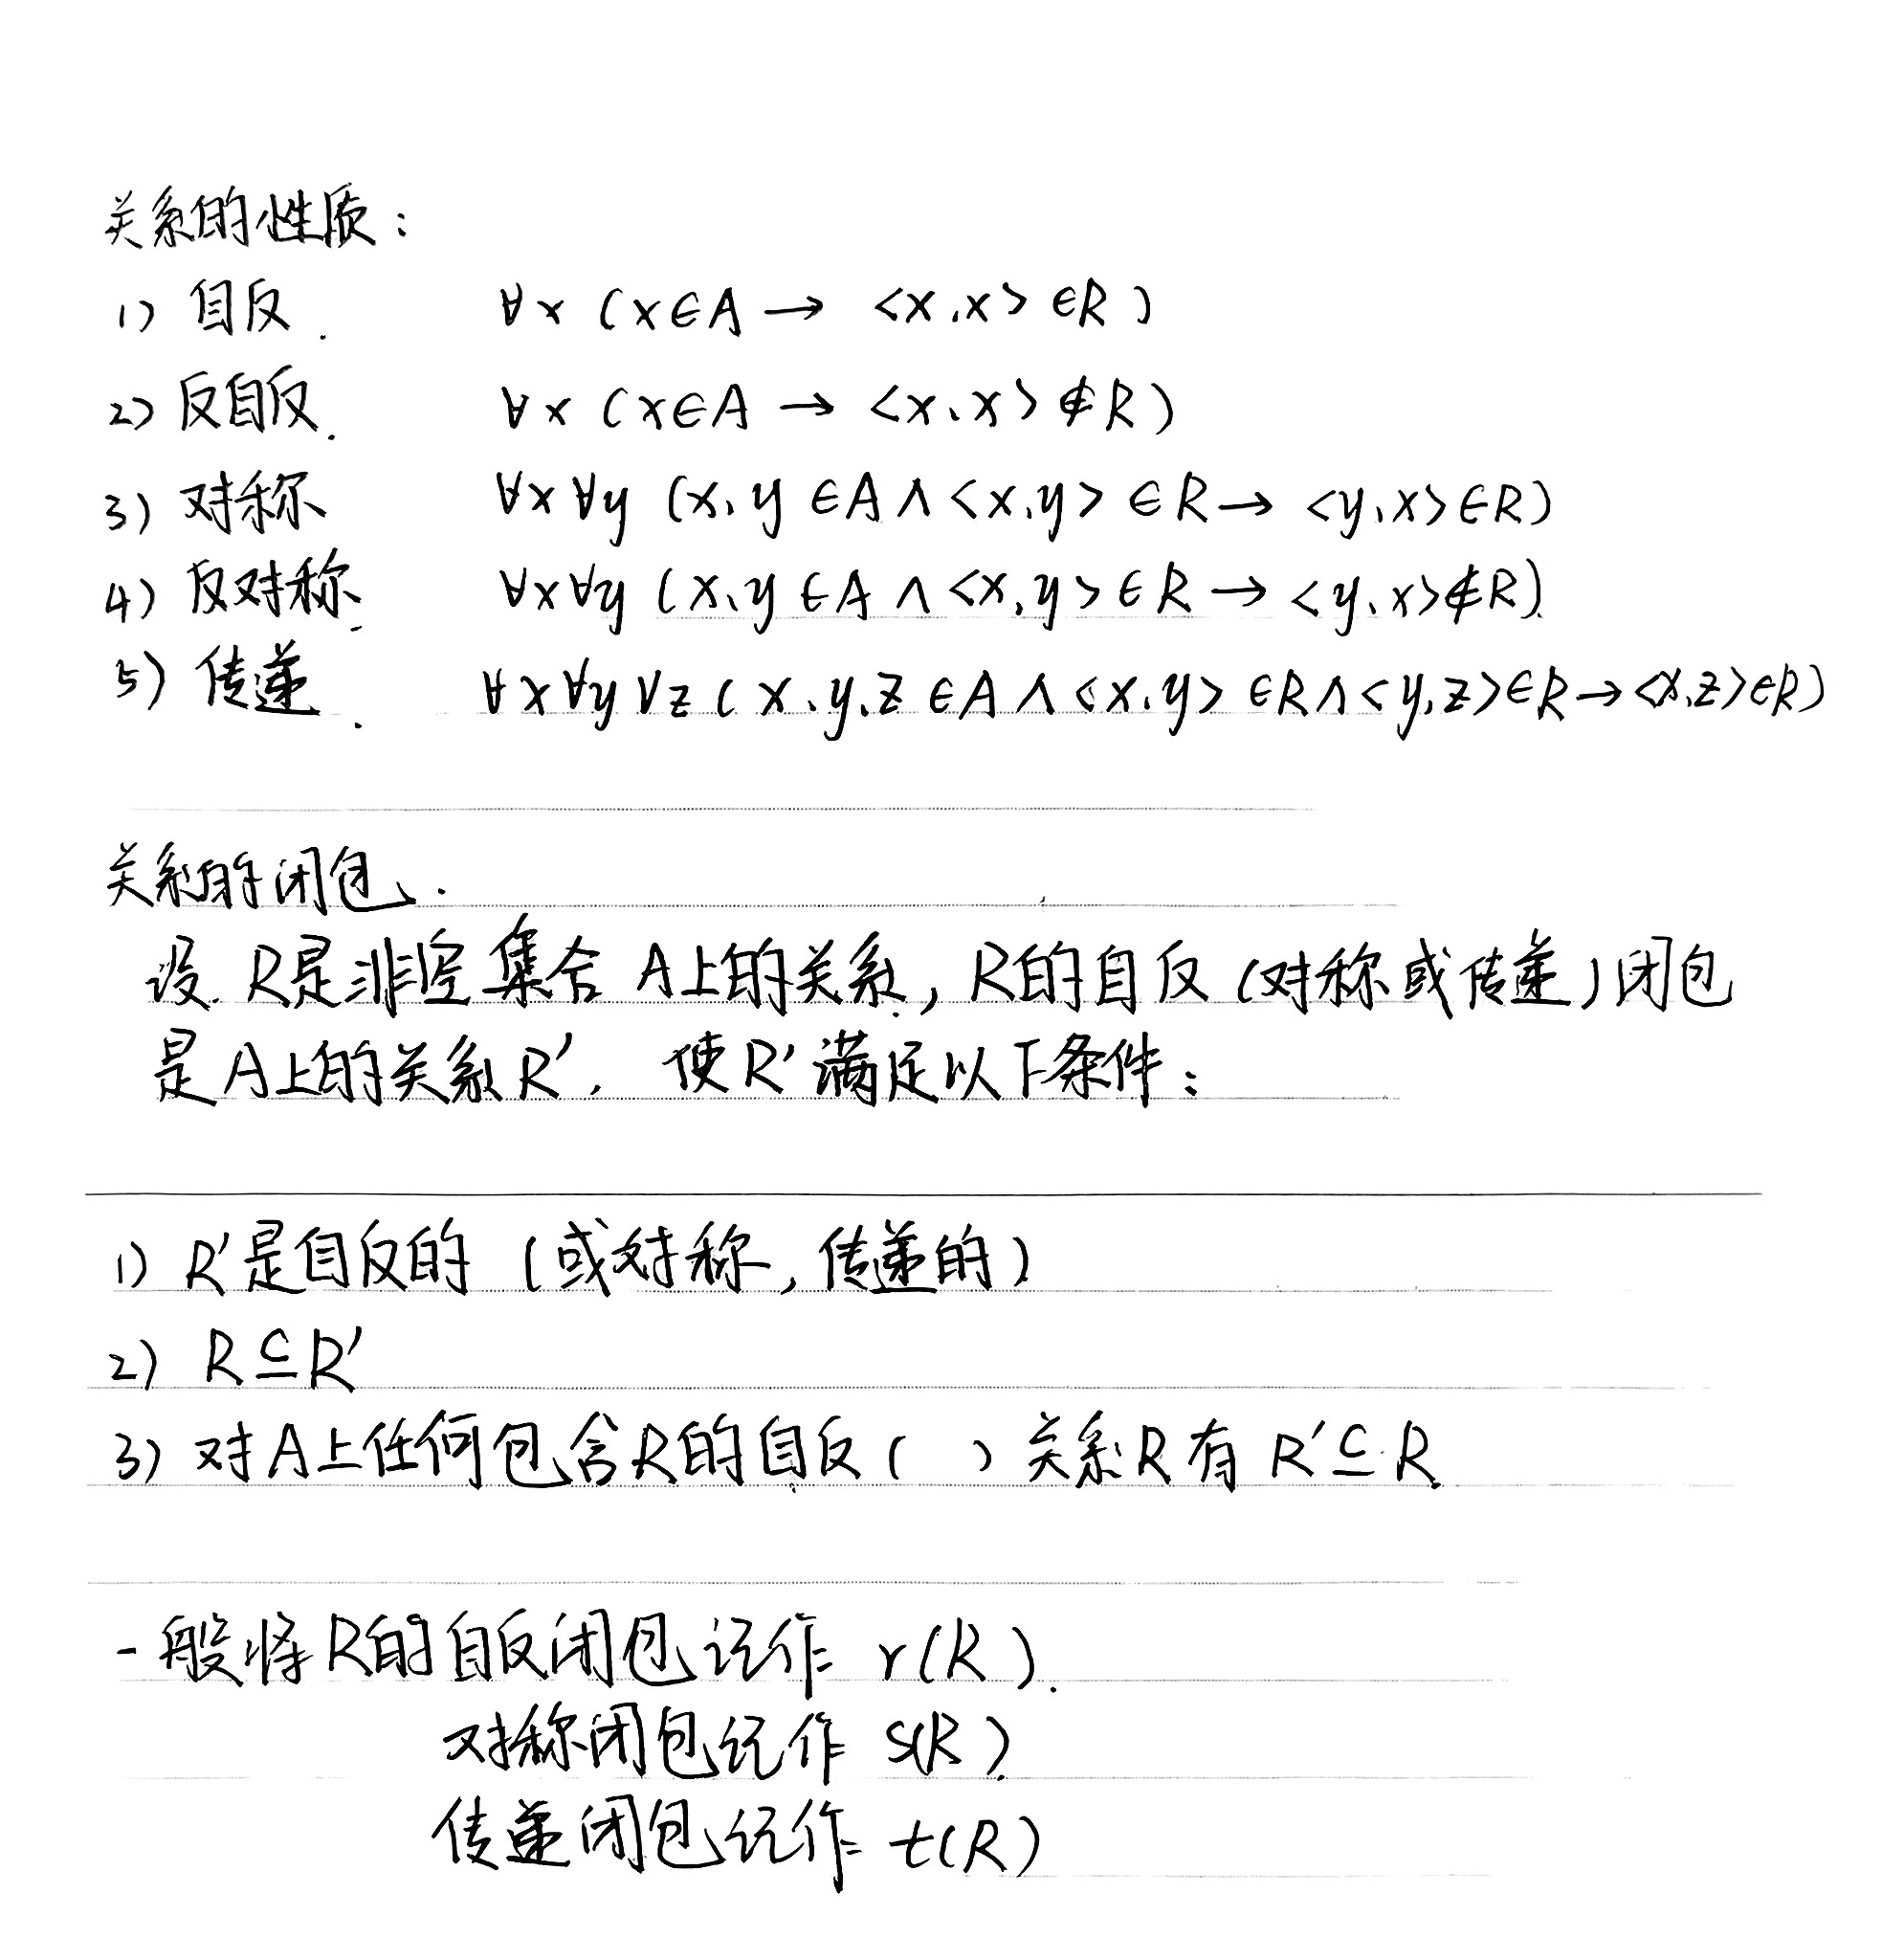 关系的性质：
1) 自反. ∀x (x∈A → <x,x> ∈R )
2) 反自反. ∀x (x∈A → <x、x> ∉R)
3) 对称 ∀x∀y (x、y ∈A∧<x,y> ∈R→ <y,x>∈R)
4) 反对称. ∀x∀y (x、y ∈A ∧ <x,y> ∈R → <y,x>∉R).
5) 传递. ∀x∀y∀z ( x,y,z ∈A ∧<x,y> ∈R∧<y,z>∈R→<x,z>∈R)
关系的闭包.
设. R是非空集合 A上的关系, R的自反 (对称或传递) 闭包
是A上的关系R′, 使R′满足以下条件:
1) R′是自反的 (或对称,传递的)
2) R⊆R′
3) 对A上任何包含R的自反( ) 关系R有 R′⊆R.
一般将R的自反闭包记作 r(R).
对称闭包记作 s(R).
传递闭包记作 t(R)